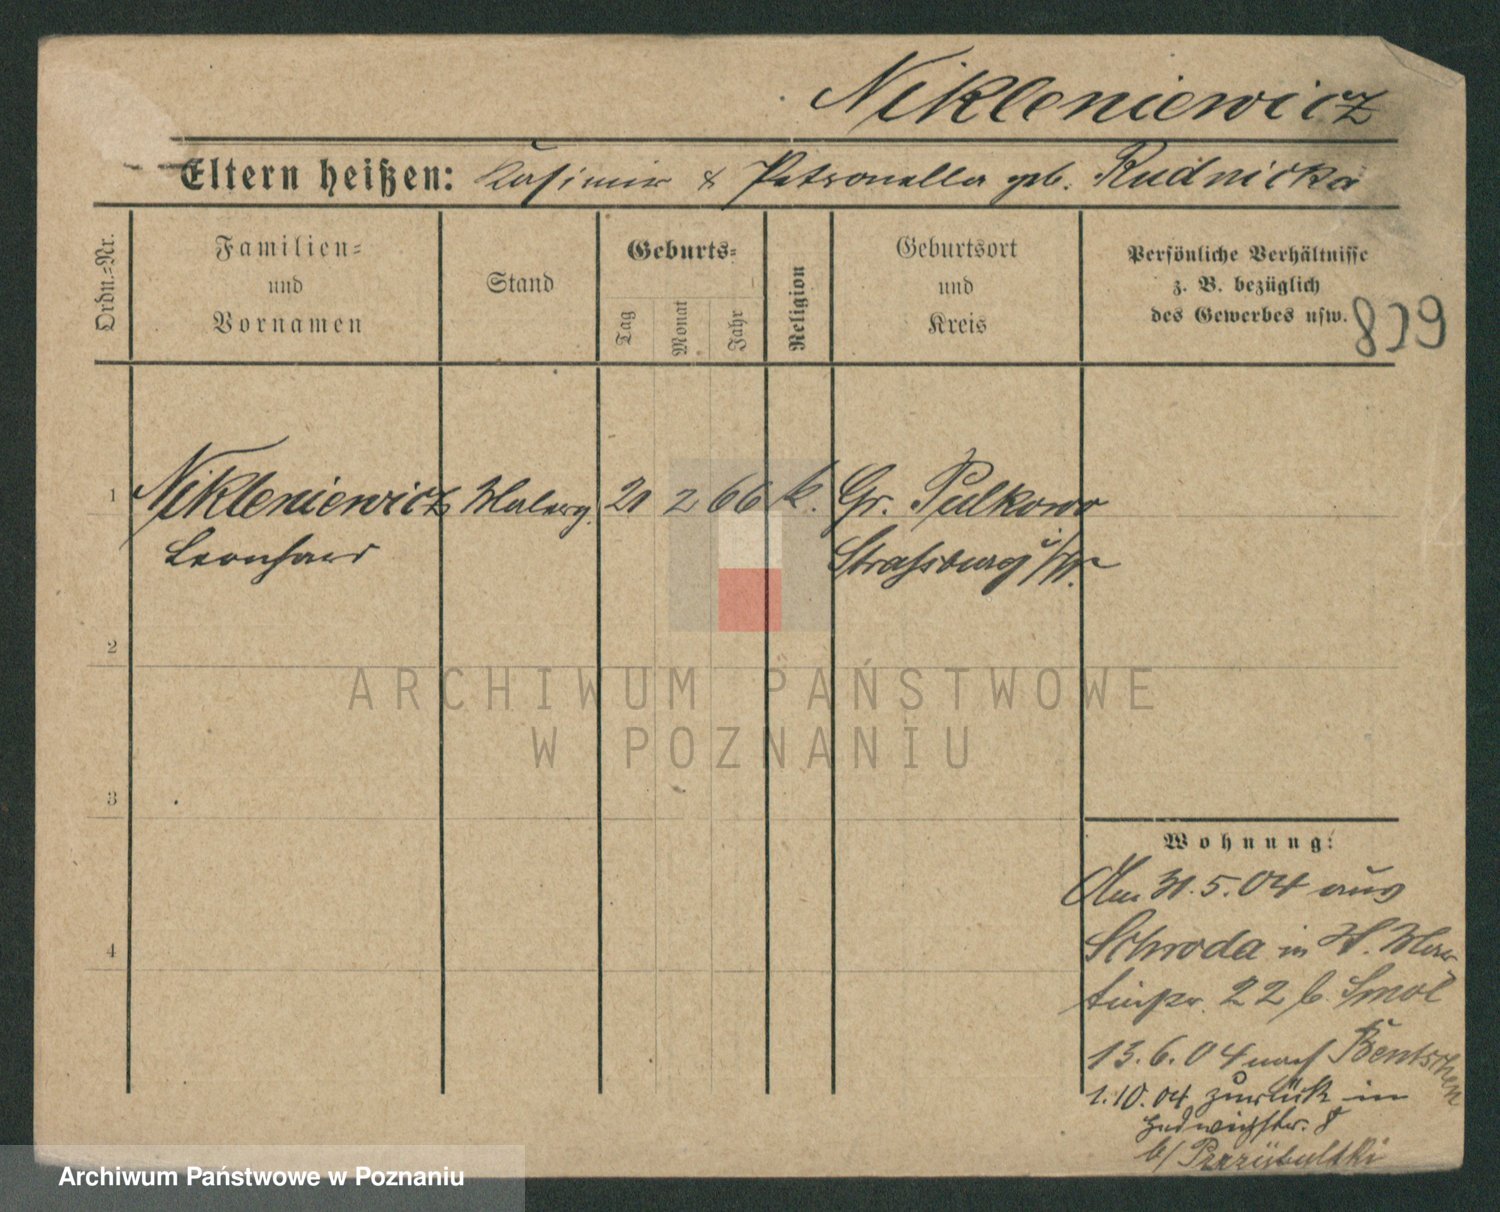 Nikleniewicz
Eltern heißen: Kasimir & Petronella geb. Rudnicka
Ordn.=Nr.
Familien=
und
Vornamen
Stand
Geburts=
Tag
Monat
Jahr
Religion
Geburtsort
und
Kreis
Persönliche Verhältnisse
z. B. bezüglich
des Gewerbes usw.
1 Nikleniewicz Malerg. 21 2 66 k. Gr. Pulkowo
Leonhard Strasburg i/W.
2
3
4
ARCHIWUM PAŃSTWOWE
W POZNANIU
Wohnung:
Am 31.5.04 aus
Schroda in St. Mar-
tinstr. 22 b. Smol
13.6.04 nach Bentschen
1.10.04 zurück in
Hedwigstr. 8
b/
Archiwum Państwowe w Poznaniu